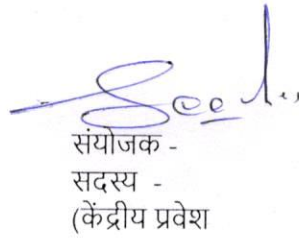 संयोजक -
सदस्य -
(केंद्रीय प्रवेश